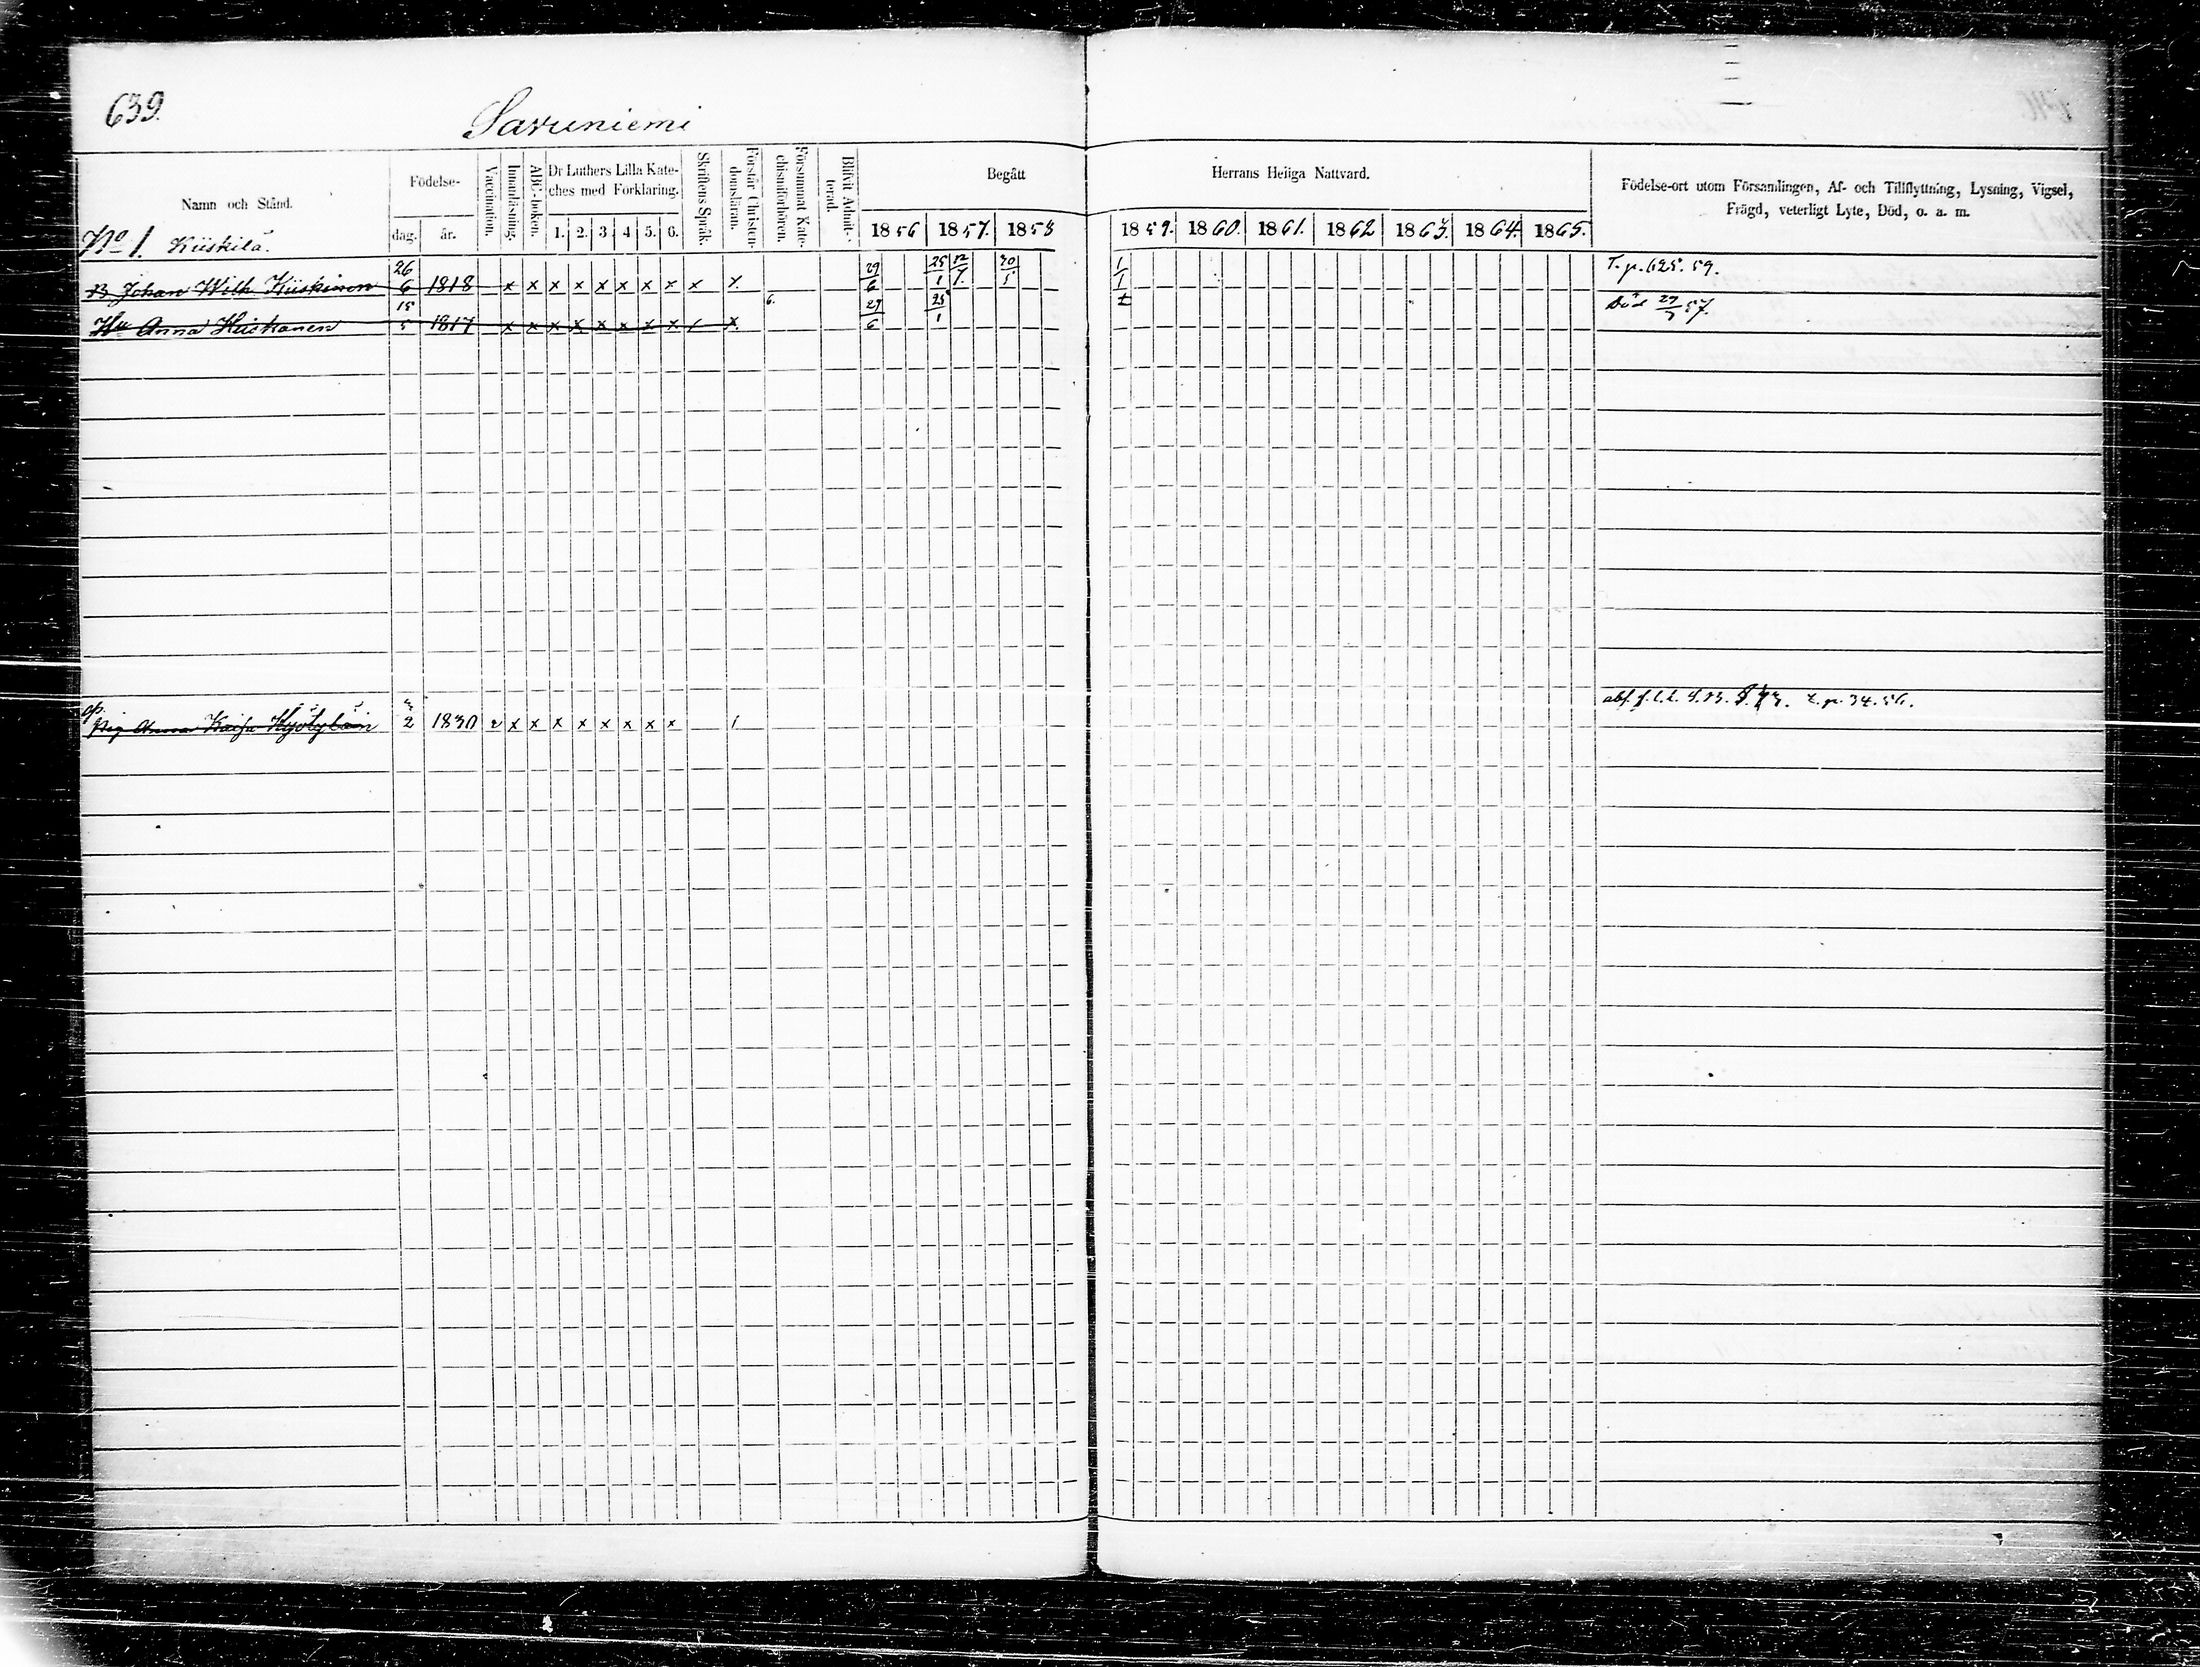 639.
Saruniemi
Namn och Stånd.
Födelse-
dag.
år.
Vaccination.
Innanläsning.
ABC-boken.
Dr Luthers Lilla Kate-
ches med Förklaring.
1. 2. 3. 4 5. 6.
Skriftens Språk.
Förstår Christen-
domsläran.
Försummat Kate-
chismiförhören.
Blifvit Admit-
terad.
Begått
Herrans Heliga Nattvard.
1856 1857. 1858
1859. 1860. 1861. 1862 1863. 1864. 1865.
Födelse-ort utom Församlingen, Af- och Tillflyttning, Lysning, Vigsel,
Frägd, veterligt Lyte, Död, o. a. m.
No 1. Kiiskilä.
B Johan Wilh. Kiiskinen 26/6 1818 x x x x x x x x x x 29/6 25/1 12/7. 30/5 1/1 T. p. 625. 59.
Hu Anna Huskonen 15/5 1817 x x x x x x x x / x 6. 29/6 25/1 Död 57.
Pig Anna Kaisa Kyölyläin 2 1830 v x x x x x x x x 1 t. p. 34. 56.